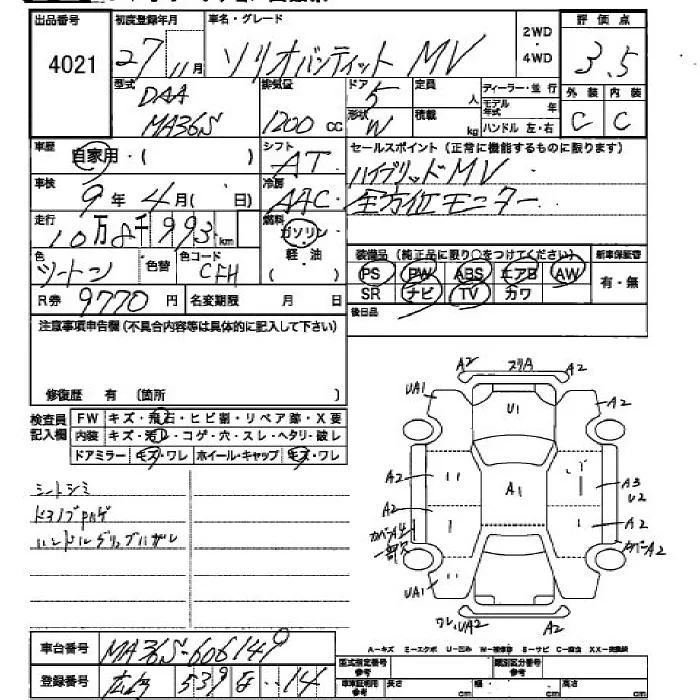 出品番号 初度登録年月 車名・グレード 2WD・4WD 評価点
4021 27 11月 ソリオバンディット MV 3.5
型式 排気量 ドア 定員 ディーラー・並行 外装 内装
DAA 5 人 モデル年式 年
MA36S 1200 cc 形状 W 積載 kg ハンドル 左・右 C C
車歴 自家用・( ) シフト AT セールスポイント (正常に機能するものに限ります)
ハイブリッドMV
車検 9年 4月( 日) 冷房 AAC 全方位モニター
走行 10万8千993km 燃料 ガソリン 軽油 ( )
装備品 (純正品に限り○をつけてください) 新車保証書
色 ツートン 色替 色コード CFH
PS PW ABS エアB AW 有・無
SR ナビ TV カワ
R券 9770円 名変期限 月 日
後日品
注意事項申告欄(不具合内容等は具体的に記入して下さい)
修復歴 有 〔箇所 〕
検査員記入欄 FW キズ・飛石・ヒビ割・リペア跡・X要
内装 キズ・汚レ・コゲ・穴・スレ・ヘタリ・破レ
ドアミラー キズ・ワレ ホイール・キャップ キズ・ワレ
シートシミ
ドアノブハゲ
ハンドルグリップハガレ
A2 スリA A2
UA1 A2
U1
A2 A3 U2
A1
A2 A2
カバーA4 一部欠 カバーA2
UA1
ワレ、UA2 A2
A-キズ E-エクボ U-凹み W-補修跡 S-サビ C-腐食 XX-交換跡
車台番号 MA36S-606149
型式指定番号 参考 類別区分番号 参考
登録番号 広島 539 14
車車証明用 参考 長さ cm 幅 cm 高さ cm